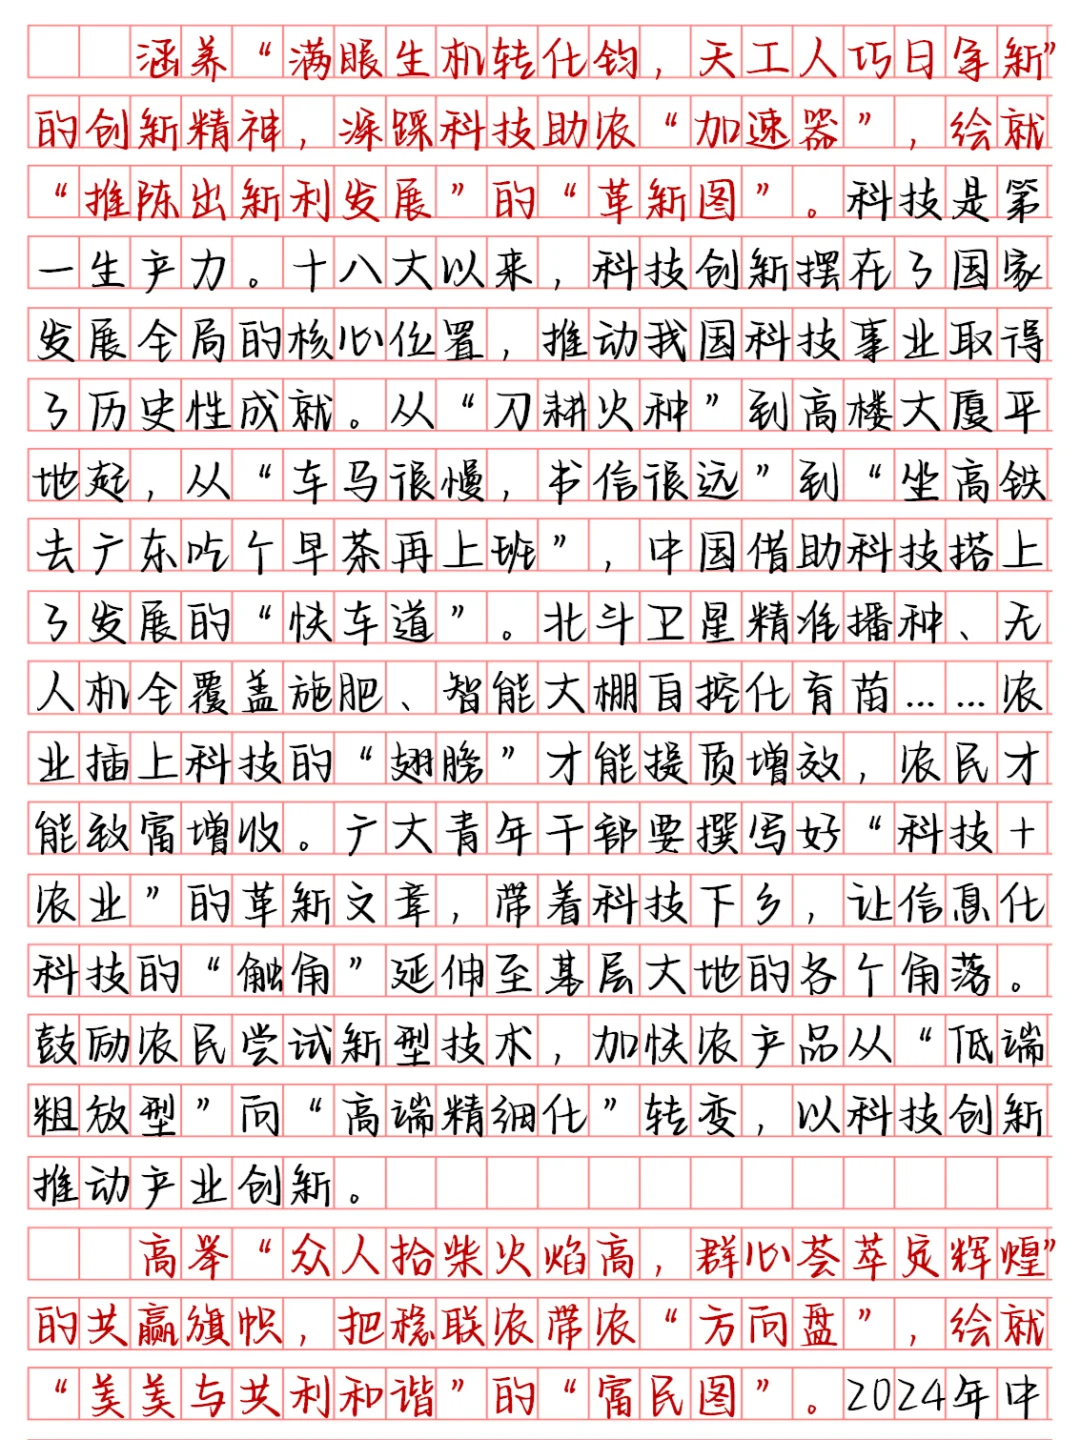 涵养“满眼生机转化钧，天工人巧日争新”
的创新精神，深踩科技助农“加速器”，绘就
“推陈出新利发展”的“革新图”。科技是第
一生产力。十八大以来，科技创新摆在了国家
发展全局的核心位置，推动我国科技事业取得
了历史性成就。从“刀耕火种”到高楼大厦平
地起，从“车马很慢，书信很远”到“坐高铁
去广东吃个早茶再上班”，中国借助科技搭上
了发展的“快车道”。北斗卫星精准播种、无
人机全覆盖施肥、智能大棚自控化育苗……农
业插上科技的“翅膀”才能提质增效，农民才
能致富增收。广大青年干部要撰写好“科技+
农业”的革新文章，带着科技下乡，让信息化
科技的“触角”延伸至基层大地的各个角落。
鼓励农民尝试新型技术，加快农产品从“低端
粗放型”向“高端精细化”转变，以科技创新
推动产业创新。
高举“众人拾柴火焰高，群心荟萃定辉煌”
的共赢旗帜，把稳联农带农“方向盘”，绘就
“美美与共利和谐”的“富民图”。2024年中